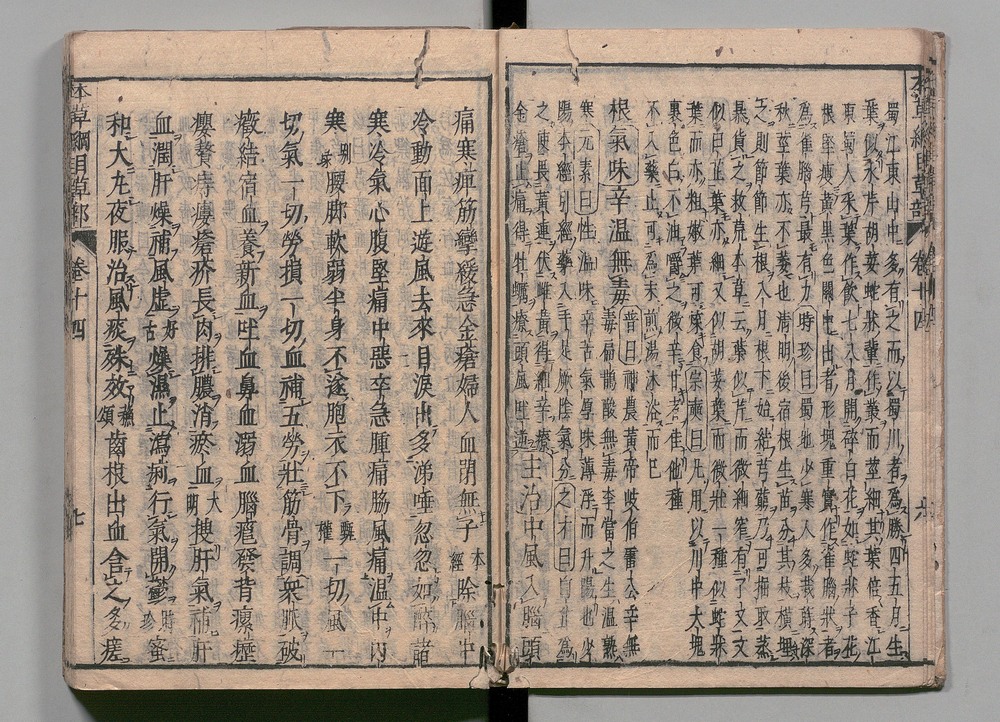 本草綱目草部 卷十四 六
蜀江東山中多有之而以蜀川者為勝四五月生
葉似水芹胡荽蛇牀輩作叢而莖細其葉倍香江
東蜀人采葉作飲七八月開碎白花如蛇牀子花
根堅瘦黃黑色關中出者形塊重實作雀腦狀者
為雀腦芎最有力時珍曰蜀地少寒人多栽蒔深
秋莖葉亦不萎也清明後宿根生苗分其枝橫埋
之則節節生根八月根下始結芎藭乃可掘取蒸
暴貨之救荒本草云葉似芹而微細窄有子又文
似白芷葉亦細又似胡荽葉而微壯一種似蛇牀
葉而亦粗嫩葉可煠食宗奭曰凡用以川中大塊
裏色白不油嚼之微辛甘者佳他種
不入藥止可為末煎湯沐浴而已
根氣味辛溫無毒普曰神農黃帝岐伯雷公辛無
毒扁鵲酸無毒李當之生溫熟
寒元素曰性溫味辛苦氣厚味薄浮而升陽也少
陽本經引經藥入手足厥陰氣分之才曰白芷為
之使畏黃連伏雌黃得細辛療
金瘡止痛得牡蠣療頭風吐逆主治中風入腦頭
痛寒痺筋攣緩急金瘡婦人血閉無子本經除腦中
冷動面上遊風去來目淚出多涕唾忽忽如醉諸
寒冷氣心腹堅痛中惡卒急腫痛脇風痛溫中內
寒別錄腰脚軟弱半身不遂胞衣不下甄權一切風一
切氣一切勞損一切血補五勞壯筋骨調衆脈破
癥結宿血養新血吐血鼻血溺血腦癰發背瘰癧
癭贅痔瘻瘡疥長肉排膿消瘀血大明搜肝氣補肝
血潤肝燥補風虛好古燥濕止瀉痢行氣開鬱時珍蜜
和大丸夜服治風痰殊效蘇頌齒根出血含之多瘥
本草綱目草部 卷十四 七